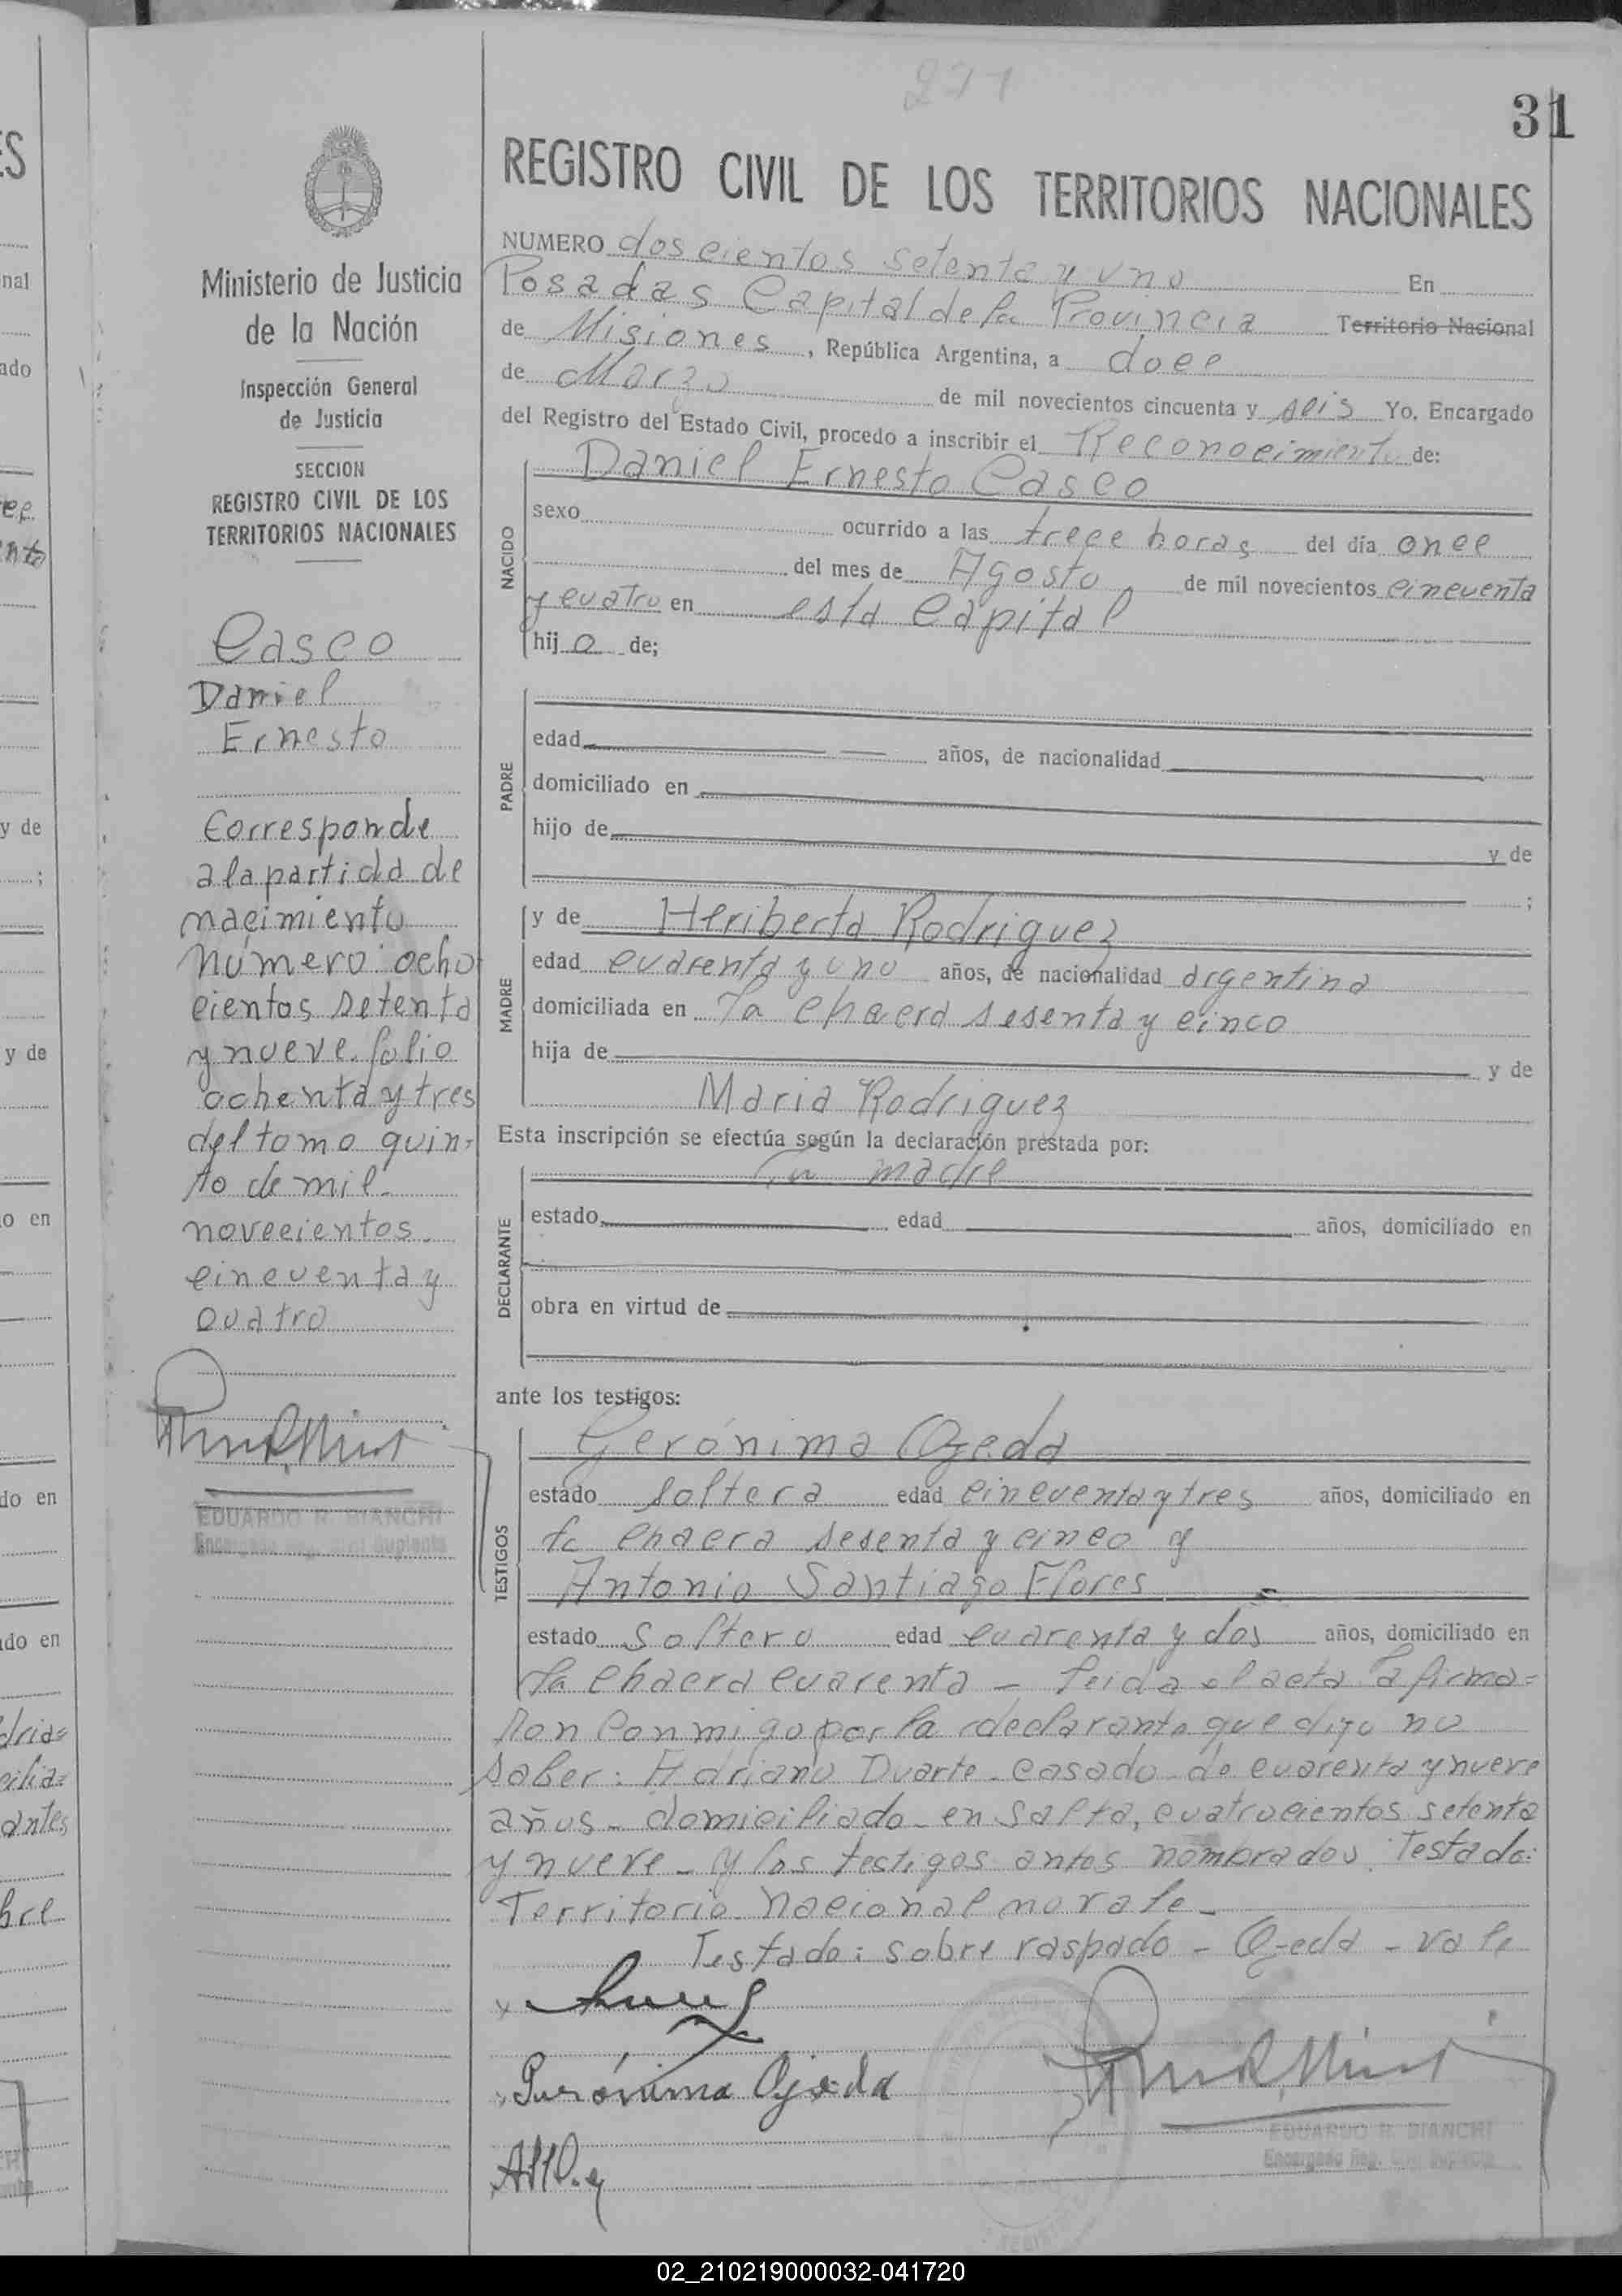 271
31
REGISTRO CIVIL DE LOS TERRITORIOS NACIONALES
Ministerio de Justicia
de la Nación
Inspección General
de Justicia
SECCION
REGISTRO CIVIL DE LOS
TERRITORIOS NACIONALES
Casco
Daniel
Ernesto
Corresponde
a la partida de
nacimiento
número ocho
cientos setenta
y nueve folio
ochenta y tres
del tomo quin-
to de mil
novecientos
cincuenta y
cuatro
EDUARDO R. BIANCHI
Encargado Reg. Civil Suplente
NUMERO doscientos setenta y uno En
Posadas Capital de la Provincia Territorio Nacional
de Misiones, República Argentina, a doce
de Marzo de mil novecientos cincuenta y seis Yo, Encargado
del Registro del Estado Civil, procedo a inscribir el Reconocimiento de:
NACIDO
Daniel Ernesto Casco
sexo ocurrido a las trece horas del día once
del mes de Agosto de mil novecientos cincuenta
y cuatro en esta Capital
hijo de;
PADRE
edad años, de nacionalidad
domiciliado en
hijo de y de
;
MADRE
y de Heriberta Rodriguez
edad cuarenta y uno años, de nacionalidad argentina
domiciliada en la chacra sesenta y cinco
hija de y de
Maria Rodriguez
Esta inscripción se efectúa según la declaración prestada por:
DECLARANTE
La madre
estado edad años, domiciliado en
obra en virtud de
ante los testigos:
TESTIGOS
Gerónima Ojeda
estado soltera edad cincuenta y tres años, domiciliado en
la chacra sesenta y cinco y
Antonio Santiago Flores
estado soltero edad cuarenta y dos años, domiciliado en
la chacra cuarenta - Leida el acta la firma=
ron conmigo por la declarante que dijo no
saber: Adriano Duarte - casado - de cuarenta y nueve
años - domiciliado en Salta, cuatrocientos setenta
y nueve - y los testigos antes nombrados. Testado:
Territorio nacional no vale -
Testado: sobre raspado - Ojeda - vale
Gerónima Ojeda
EDUARDO R. BIANCHI
Encargado Reg. Civil Suplente
02_210219000032-041720